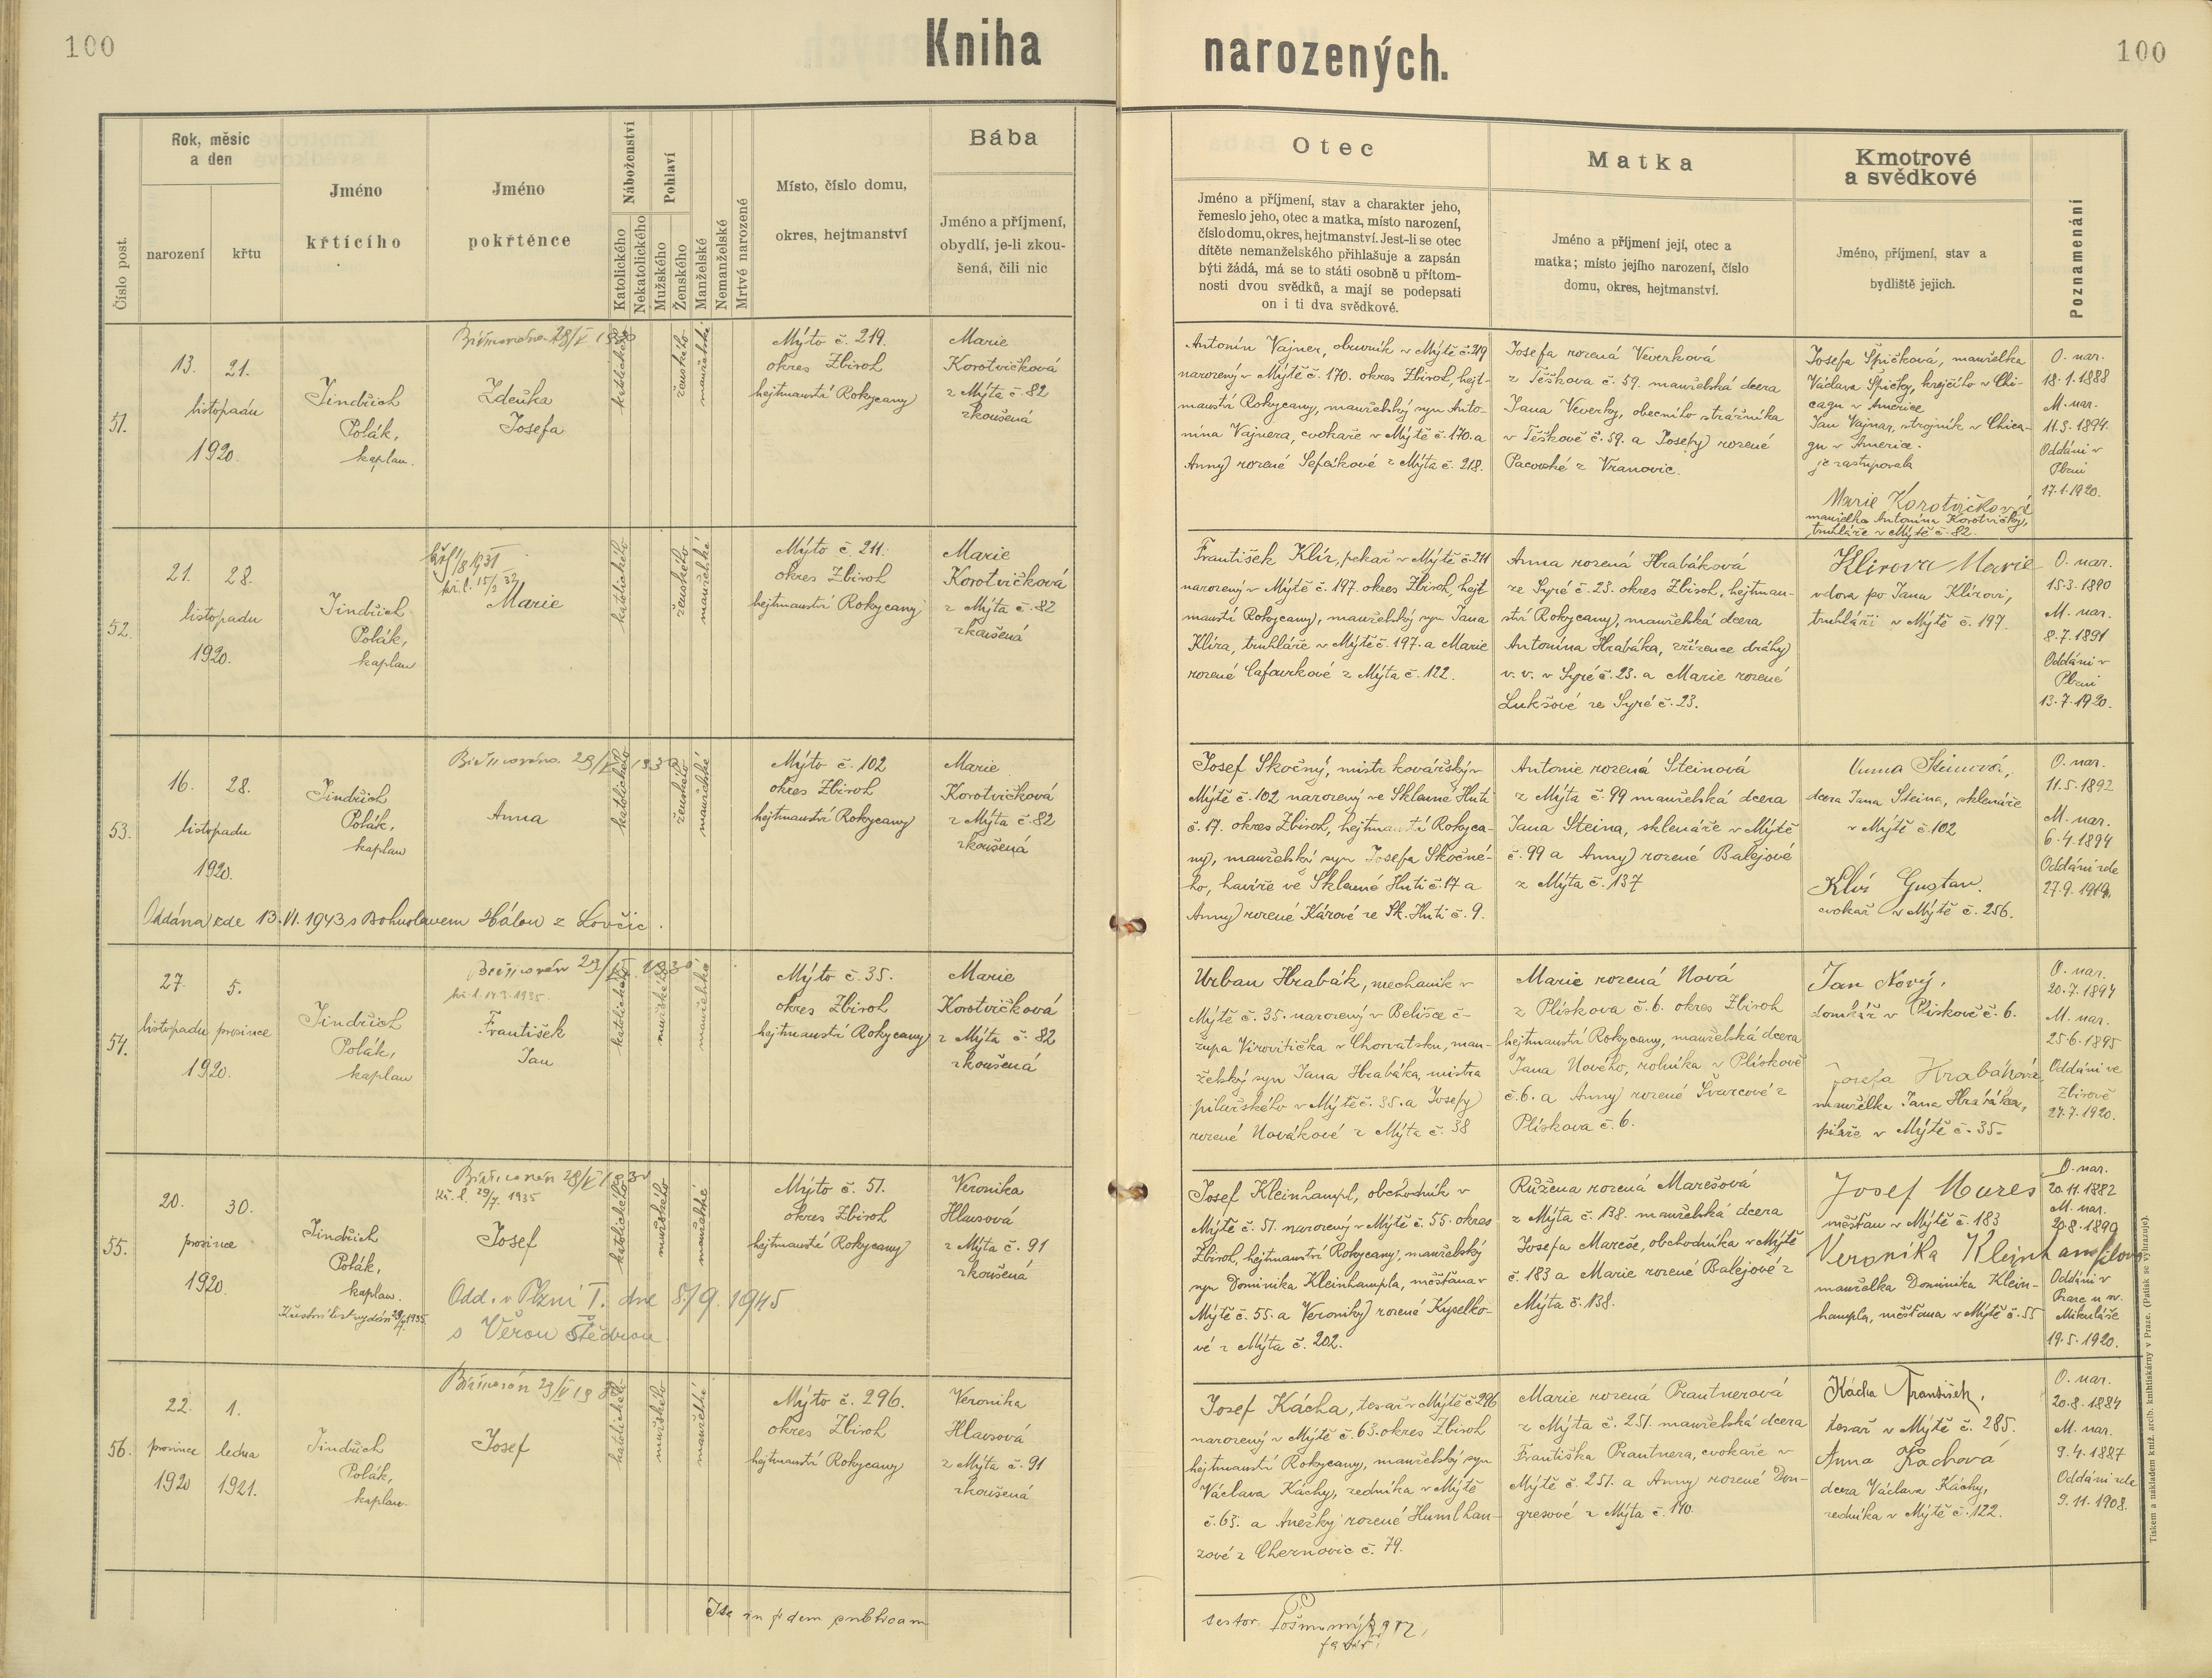 100
Kniha narozených.
100
Číslo post.
Rok, měsíc
a den
narození
křtu
Jméno
křtícího
Jméno
pokřtěnce
Náboženství
Katolického
Nekatolického
Pohlaví
Mužského
Ženského
Manželské
Nemanželské
Mrtvé narozené
Místo, číslo domu,
okres, hejtmanství
Bába
Jméno a příjmení,
obydlí, je-li zkou-
šená, čili nic
Otec
Jméno a příjmení, stav a charakter jeho,
řemeslo jeho, otec a matka, místo narození,
číslo domu, okres, hejtmanství. Jest-li se otec
dítěte nemanželského přihlašuje a zapsán
býti žádá, má se to státi osobně u přítom-
nosti dvou svědků, a mají se podepsati
on i ti dva svědkové.
Matka
Jméno a příjmení její, otec a
matka; místo jejího narození, číslo
domu, okres, hejtmanství.
Kmotrové
a svědkové
Jméno, příjmení, stav a
bydliště jejich.
Poznamenání
51.
13. 21.
listopadu
1920.
Jindřich
Polák,
kaplan.
Zdeňka
Josefa
katolického
ženského
manželské
Mýto č. 219.
okres Zbiroh
hejtmanství Rokycany
Marie
Korotvičková
z Mýta č. 82
zkoušená
Antonín Vajner, obuvník v Mýtě č. 219
narozený v Mýtě č. 170. okres Zbiroh, hejt-
manství Rokycany, manželský syn Anto-
nína Vajnera, cvokaře v Mýtě č. 170. a
Anny rozené Sefákové z Mýta č. 218.
Josefa rozená Veverková
z Těškova č. 59. manželská dcera
Jana Veverky, obecního strážníka
v Těškově č. 59. a Josefy rozené
Pacovské z Vranovic.
Josefa Špičková, manželka
Václava Špičky, krejčího v Chi-
cagu v Americe
Jan Vajnar, strojník v Chica-
gu v Americe.
je zastupovala
Marie Korotvičková
manželka Antonína Korotvičky,
truhláře v Mýtě č. 82.
O. nar.
18.1.1888
M. nar.
11.3.1894.
Oddáni v
Plzni
17.1.1920.
52.
21. 28.
listopadu
1920.
Jindřich
Polák,
kaplan
Marie
katolického
ženského
manželské
Mýto č. 211.
okres Zbiroh
hejtmanství Rokycany
Marie
Korotvičková
z Mýta č. 82
zkoušená
František Klír, pekař v Mýtě č. 211
narozený v Mýtě č. 197. okres Zbiroh, hejt
manství Rokycany, manželský syn Jana
Klíra, truhláře v Mýtě č. 197. a Marie
rozené Cafourkové z Mýta č. 122.
Anna rozená Hrabáková
ze Syré č. 23. okres Zbiroh, hejtman-
ství Rokycany, manželská dcera
Antonína Hrabáka, zřízence dráhy
v. v. v Syré č. 23. a Marie rozené
Lukšové ze Syré č. 23.
Klirova Marie
vdova po Janu Klírovi,
truhláři v Mýtě č. 197.
O. nar.
15.3.1890
M. nar.
8.7.1891
Oddáni v
Plzni
13.7.1920.
53.
16. 28.
listopadu
1920.
Jindřich
Polák,
kaplan
Anna
katolického
ženského
manželské
Mýto č. 102
okres Zbiroh
hejtmanství Rokycany
Marie
Korotvičková
z Mýta č. 82
zkoušená
Oddána zde 13.VI.1943 s Bohuslavem Hálou z Lovčic.
Josef Skočný, mistr kovářský v
Mýtě č. 102 narozený ve Sklenné Huti
č. 17. okres Zbiroh, hejtmanství Rokyca-
ny, manželský syn Josefa Skočné-
ho, havíře ve Sklenné Huti č. 17 a
Anny rozené Kárové ze Sk. Huti č. 9.
Antonie rozená Steinová
z Mýta č. 99 manželská dcera
Jana Steina, sklenáře v Mýtě
č. 99 a Anny rozené Balejové
z Mýta č. 137
Anna Steinová,
dcera Jana Steina, sklenáře
v Mýtě č. 102
Klír Gustav.
cvokař v Mýtě č. 256.
O. nar.
11.5.1892
M. nar.
6.4.1894
Oddáni zde
27.9.1919.
54.
27. 5.
listopadu prosince
1920.
Jindřich
Polák,
kaplan
kř. l. 14.3.1935.
František
Jan
katolického
mužského
manželské
Mýto č. 35.
okres Zbiroh
hejtmanství Rokycany
Marie
Korotvičková
z Mýta č. 82
zkoušená
Urban Hrabák, mechanik v
Mýtě č. 35. narozený v Belišce č-
župa Virovitička v Chorvatsku, man-
želský syn Jana Hrabáka, mistra
pilařského v Mýtě č. 35. a Josefy
rozené Novákové z Mýta č. 38
Marie rozená Nová
z Plískova č. 6. okres Zbiroh
hejtmanství Rokycany, manželská dcera
Jana Nového, rolníka v Plískově
č. 6. a Anny rozené Švarcové z
Plískova č. 6.
Jan Nový,
domkář v Plískově č. 6.
Josefa Hrabáková,
manželka Jana Hrabáka,
pilaře v Mýtě č. 35.
O. nar.
20.7.1894
M. nar.
25.6.1895
Oddáni ve
Zbirově
27.7.1920.
55.
20. 30.
prosince
1920.
Jindřich
Polák,
kaplan.
Křestní list vydán 29/7.1935.
Kř. l. 29/7. 1935
Josef
Odd. v Plzni I. dne 8/9. 1945
s Věrou Štědrou.
katolického
mužského
manželské
Mýto č. 51.
okres Zbiroh
hejtmanství Rokycany
Veronika
Hlavsová
z Mýta č. 91
zkoušená
Josef Kleinhampl, obchodník v
Mýtě č. 51. narozený v Mýtě č. 55. okres
Zbiroh, hejtmanství Rokycany, manželský
syn Dominika Kleinhampla, měšťana v
Mýtě č. 55. a Veroniky rozené Kyselko-
vé z Mýta č. 202.
Růžena rozená Marešová
z Mýta č. 138. manželská dcera
Josefa Mareše, obchodníka v Mýtě
č. 183 a Marie rozené Balejové z
Mýta č. 138.
Josef Mareš
měšťan v Mýtě č. 183
Veronika Kleinhamplova
manželka Dominika Klein-
hampla, měšťana v Mýtě č. 55
O. nar.
20.11.1882
M. nar.
20.8.1890
Oddáni v
Praze u sv.
Mikuláše
19.5.1920.
56.
22. 1.
prosince ledna
1920 1921.
Jindřich
Polák,
kaplan.
Josef
katolického
mužského
manželské
Mýto č. 296.
okres Zbiroh
hejtmanství Rokycany
Veronika
Hlavsová
z Mýta č. 91
zkoušená
Josef Kácha, tesař v Mýtě č. 296
narozený v Mýtě č. 63. okres Zbiroh
hejtmanství Rokycany, manželský syn
Václava Káchy, zedníka v Mýtě
č. 63. a Anežky rozené Humlhan-
zové z Chernovic č. 79.
Marie rozená Prautnerová
z Mýta č. 251. manželská dcera
Františka Prautnera, cvokaře v
Mýtě č. 251. a Anny rozené Don-
gresové z Mýta č. 170.
Kácha František,
tesař v Mýtě č. 285.
Anna Káchová
dcera Václava Káchy,
zedníka v Mýtě č. 122.
O. nar.
20.8.1884
M. nar.
9.4.1887
Oddáni zde
9.11.1908.
Tiskem a nákladem kníž. arcib. knihtiskárny v Praze. (Patisk se vyhrazuje).